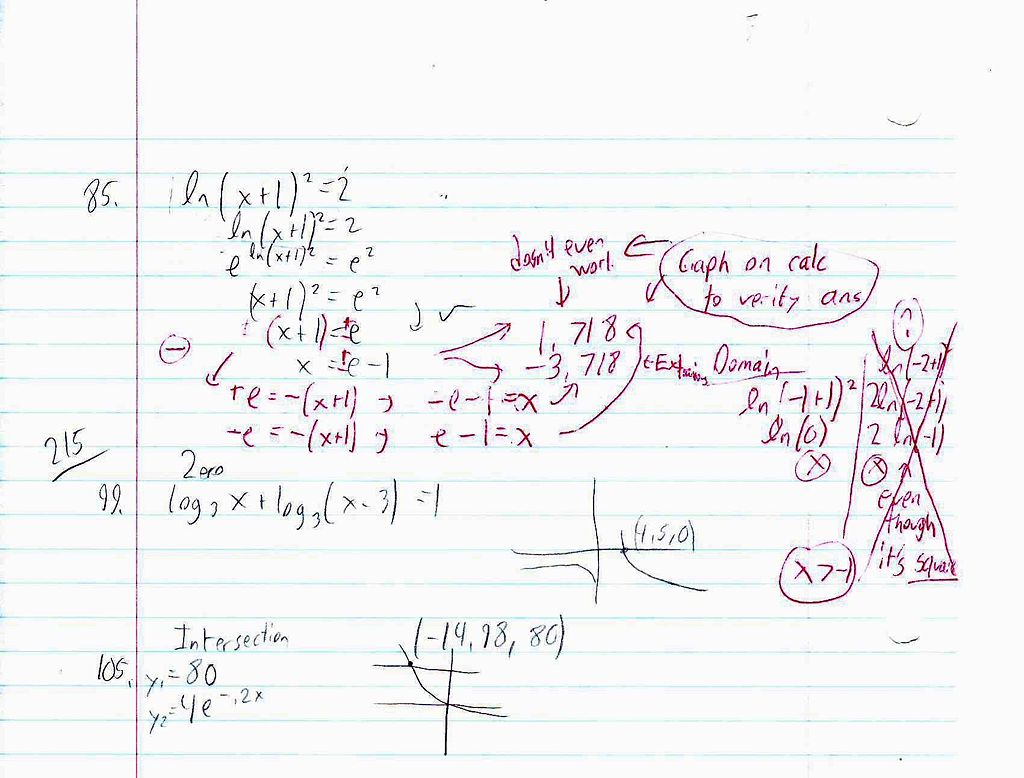 85. ln(x+1)² = 2
ln(x+1)² = 2
e^ln(x+1)² = e²
(x+1)² = e²
(x+1) = ±e
x = ±e - 1
+e = -(x+1) → -e - 1 = x
-e = -(x+1) → e - 1 = x
doesn't even
work
Gaph on calc
to verify ans
1,718
-3,718
Domain
ln(-1+1)²
ln(0)
x
x > -1
?
ln(-2+1)²
2ln(-2+1)
2 ln(-1)
x
even
though
it's square
215
Zero
99. log₃x + log₃(x-3) = 1
(4,5,0)
Intersection
(-14,98, 80)
105. y₁ = 80
y₂ = 4e^-.2x